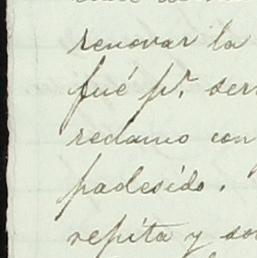 renovar la
fué pr. ser
reclamo con
padesido.
repita y so